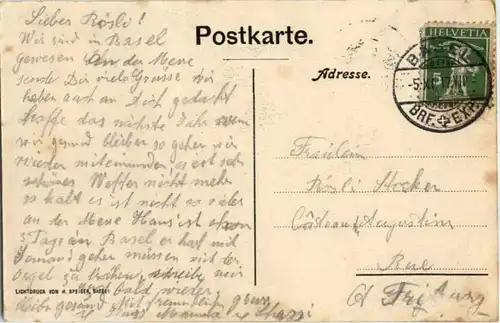 Postkarte.
Adresse.
HELVETIA
5
BASEL
BRF. EXP.
Lieber Rösli!
Wir sind in Basel
gewesen An der Mene
sende Dir viele Grüsse wir
haben auch an Dich gedacht
hoffe das nächste Jahr wenn
wir gesund bleiben so gehen wir
wieder miteinander es ist sehr
schöner Wetter nicht mehr
so kalt es ist nicht so viel
an der Mene Hans ist schon
3 Tage in Basel er hat mit
Jemand gehen müssen mit der
Orgel zu schreibe mir
bald wieder
bleibe gesund Mit freundlichem Gruss
Mamma
Fräulein
Rösli Hocker
Augustins
Rue
Fribourg
LICHTDRUCK VON H. SPEISER, BASEL